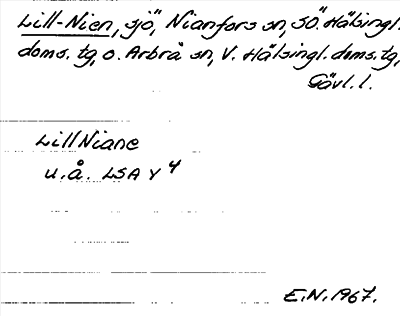 Lill-Nien, sjö, Nianfors sn, SÖ. Hälsingl.
doms. tg, o. Arbrå sn, V. Hälsingl. doms. tg,
Gävl. l.
Lill Niane
u.å. LSA Y 4
E.N. 1967.